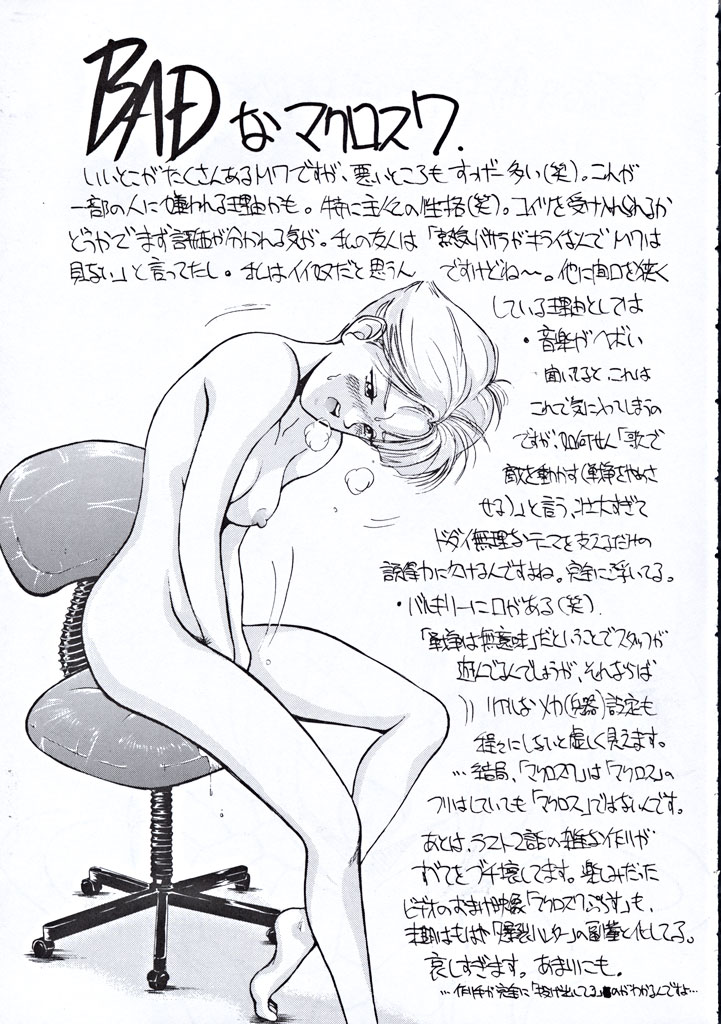 BADなマクロス7.
いいとこがたくさんあるM7ですが、悪いところもすっげー多い(笑)。これが
一部の人に嫌われる理由かも。特に主人公の性格(笑)。コイツを受け入れられるか
どうかでまず評価が分かれる気が。私の友人は「熱気バサラがキライなんでM7は
見ない」と言ってたし。私はイイ奴だと思うんですけどね〜。他に間口を狭く
している理由としては
・音楽がヘボい
聞いてると これは
これで気に入ってしまうの
ですが、如何せん「歌で
敵を動かす(戦争をやめさ
せる)」と言う、壮大すぎて
ドダイ無理なテーマを支えるだけの
説得力に欠けるんですよね。完全に浮いてる。
・バルキリーに口がある(笑).
「戦争は無意味」だということでスタッフが
遊んでるんでしょうが、それならば
リアルなメカ(兵器)設定も
程々にしないと虚しく見えます。
…結局、「マクロス7」は「マクロス」の
フリはしていても「マクロス」ではないんです。
あとは、ラスト2話の雑な作りが
すべてをブチ壊してます。楽しみだった
ビデオのおまけ映像「マクロス7ぷらす」も、
末期はもはや「爆裂ハンター」の副業と化してる。
哀しすぎます。あまりにも。
…作り手が完全に「投げ出してる」のがわかるんですよ…